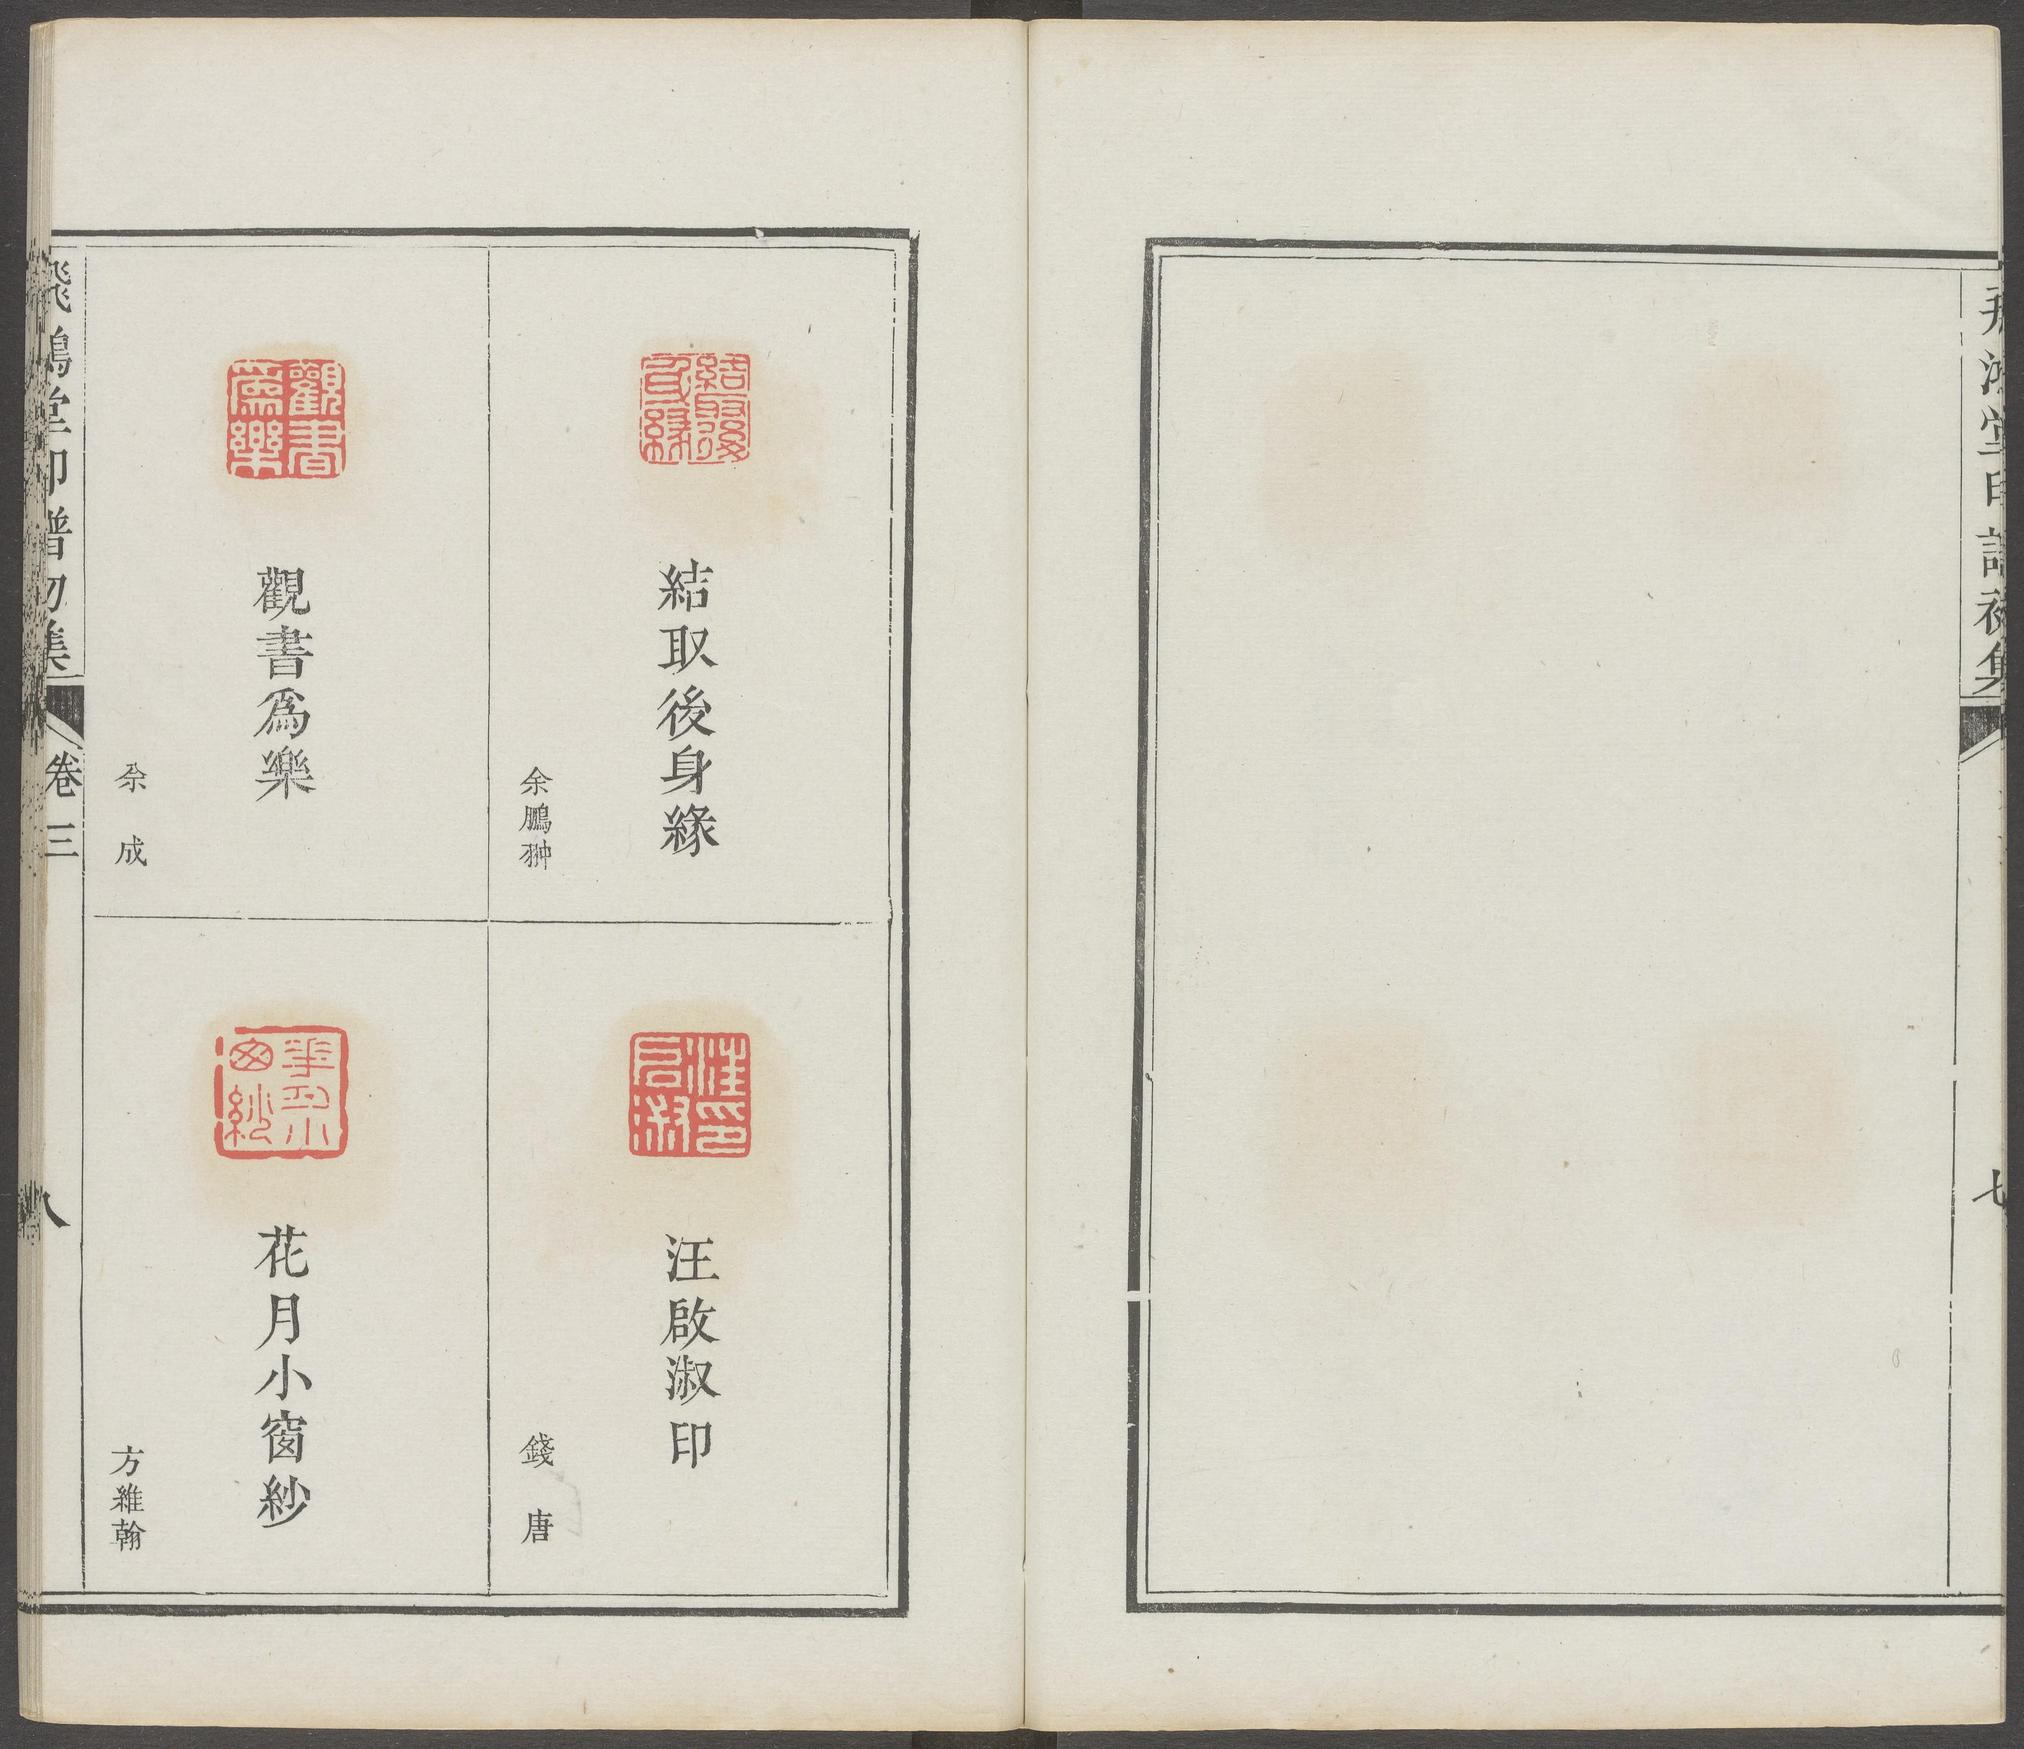 飛鴻堂印譜初集
七
結取後身緣
余鵬翀
汪啟淑印
錢唐
觀書爲樂
余成
花月小窗紗
方維翰
飛鴻堂印譜初集
卷三
八